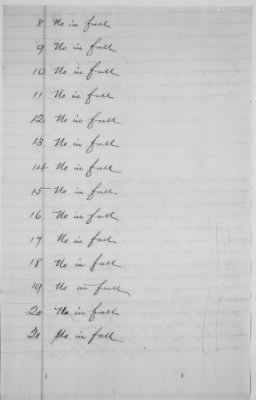 8 No in full
9 No in full
10 No in full
11 No in full
12 No in full
13 No in full
14 No in full
15 No in full
16 No in full
17 No in full
18 No in full
19 No in full
20 No in full
21 No in full